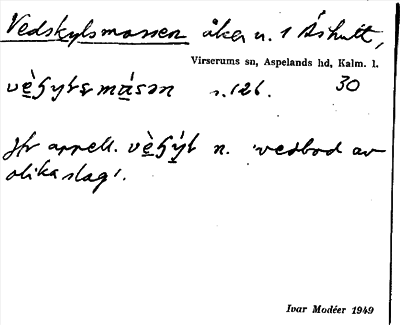 Vedskylsmossen åker u. 1 Åshult,
Virserums sn, Aspelands hd, Kalm. l.
s. 126. 30
Jfr appell. n. vedbod av
olika slag'.
Ivar Modéer 1949